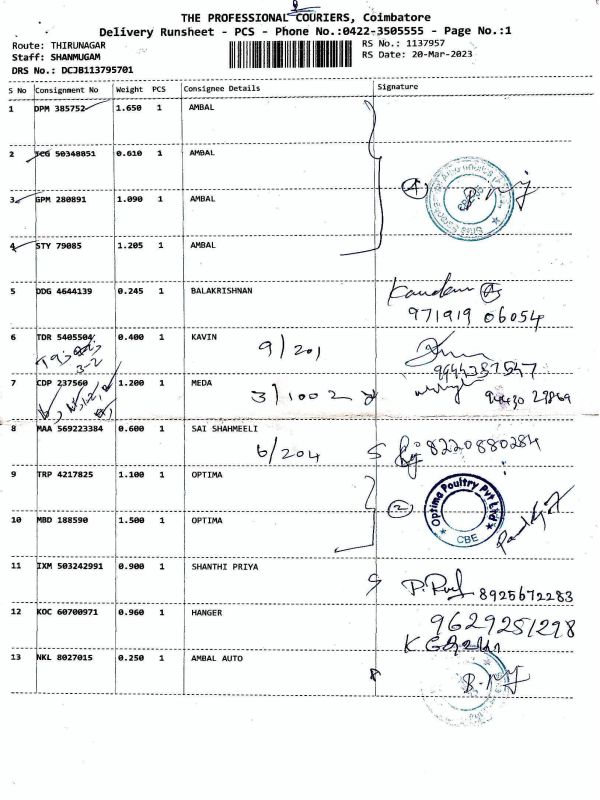 THE PROFESSIONAL COURIERS, Coimbatore
Delivery Runsheet - PCS - Phone No.:0422-3505555 - Page No.:1
Route: THIRUNAGAR
Staff: SHANMUGAM
DRS No.: DCJB113795701
RS No.: 1137957
RS Date: 20-Mar-2023
S No Consignment No Weight PCS Consignee Details Signature
1 DPM 385752 1.650 1 AMBAL
2 50348051 0.610 1 AMBAL
3 GPM 280891 1.090 1 AMBAL
4
4 STY 79085 1.205 1 AMBAL
5 DDG 4644139 0.245 1 BALAKRISHNAN
971919 06054
6 TDR 5405504 0.400 1 KAVIN 9/201
3-2
7 CDP 237560 1.200 1 MEDA 3/1002
8 MAA 569223384 0.600 1 SAI SHAHMEELI 6/204 8220880284
9 TRP 4217825 1.100 1 OPTIMA
2 Optima Poultry Pvt Ltd CBE
10 MBD 188590 1.500 1 OPTIMA
11 IXM 503242991 0.900 1 SHANTHI PRIYA 8925672283
12 KOC 60700971 0.960 1 HANGER 9629251298
13 NKL 8027015 0.250 1 AMBAL AUTO